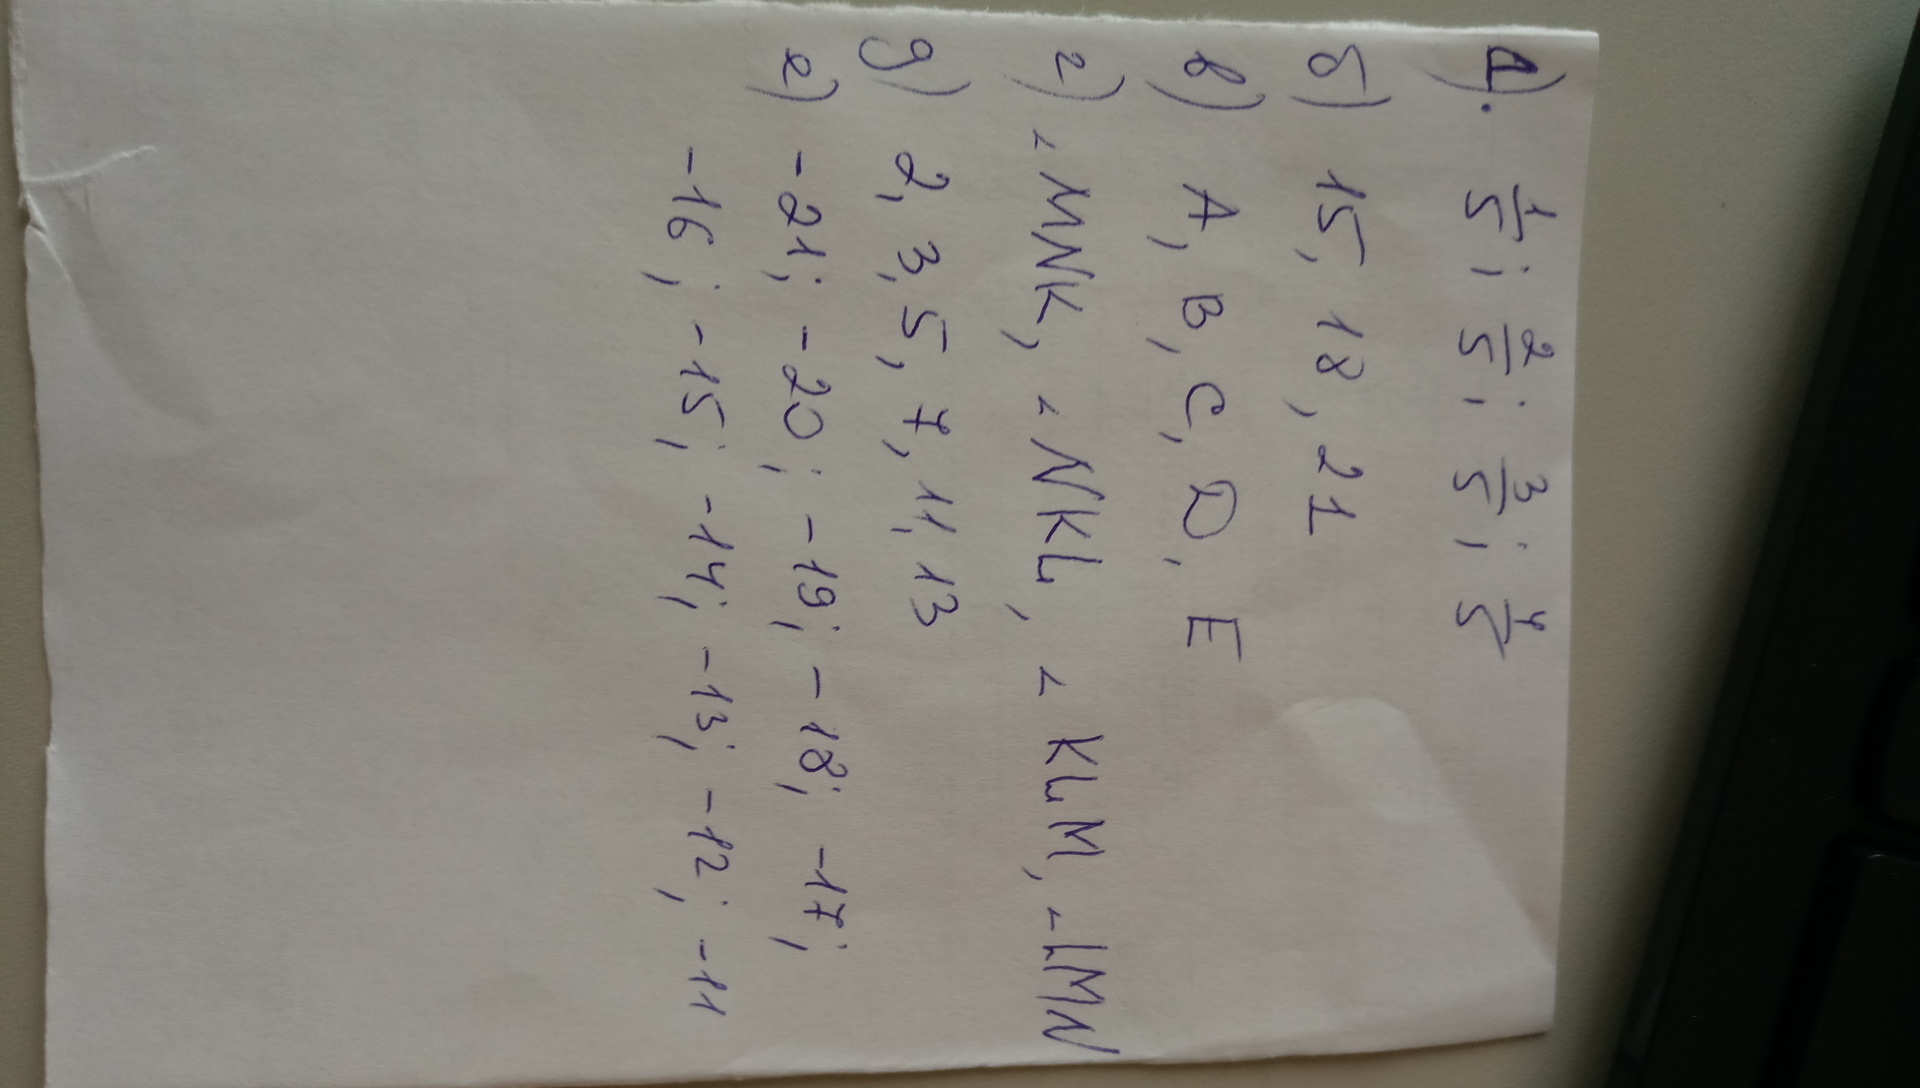 а). 1/5; 2/5; 3/5; 4/5
б) 15, 18, 21
в) A, B, C, D, E
г) ∠MNK, ∠NKL, ∠KLM, ∠LMN
д) 2, 3, 5, 7, 11, 13
е) -21; -20; -19; -18; -17;
-16; -15; -14; -13; -12; -11